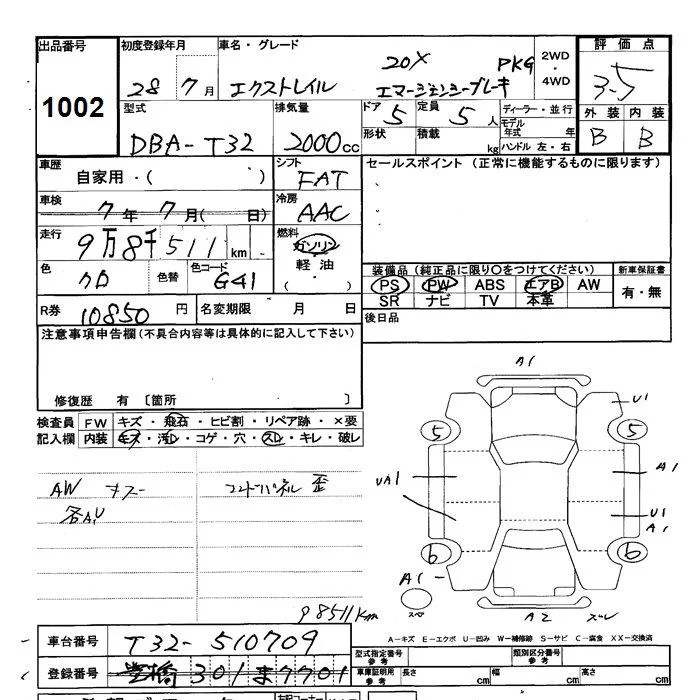 出品番号 1002
初度登録年月 28年7月
車名・グレード エクストレイル 20X エマージェンシーブレーキ PKG
2WD・4WD
評価点 3.5
外装 B 内装 B
型式 DBA-T32
排気量 2000cc
ドア 5 形状
定員 5人 積載 kg
ディーラー・並行
モデル年式 年
ハンドル 左・右
車歴 自家用・( )
シフト FAT
セールスポイント (正常に機能するものに限ります)
車検 7年7月( 日)
冷房 AAC
走行 9万8千511km
燃料 ガソリン 軽油 ( ・ )
色 クロ 色替 色コード G41
装備品 (純正品に限り○をつけてください) 新車保証書
PS PW ABS エアB AW 有・無
SR ナビ TV 本革
R券 10850円 名変期限 月 日
後日品
注意事項申告欄 (不具合内容等は具体的に記入して下さい)
修復歴 有 〔箇所 〕
検査員記入欄 FW キズ・飛石・ヒビ割・リペア跡・×要
内装 キズ・汚レ・コゲ・穴・スレ・キレ・破レ
AW キズー
各A,U
コアドパネル 歪
A1
U1
5 5
UA1
A1
U1
A1
6 6
A1-
スペ
A2 ズレ
98511Km
A-キズ E-エクボ U-凹み W-補修跡 S-サビ C-腐食 XX-交換済
車台番号 T32-510709
型式指定番号 参考 類別区分番号 参考
登録番号 豊橋 301ま7701
車庫証明用 参考 長さ cm 幅 cm 高さ cm